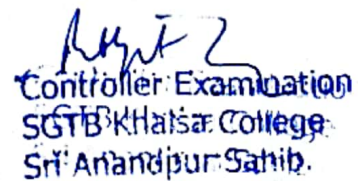 Controller Examination
SGTB Khalsa College
Sri Anandpur Sahib.